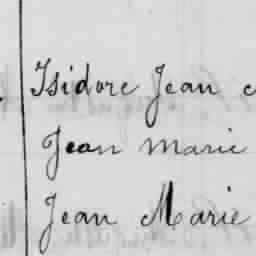 Isidore Jean
Jean Marie
Jean Marie